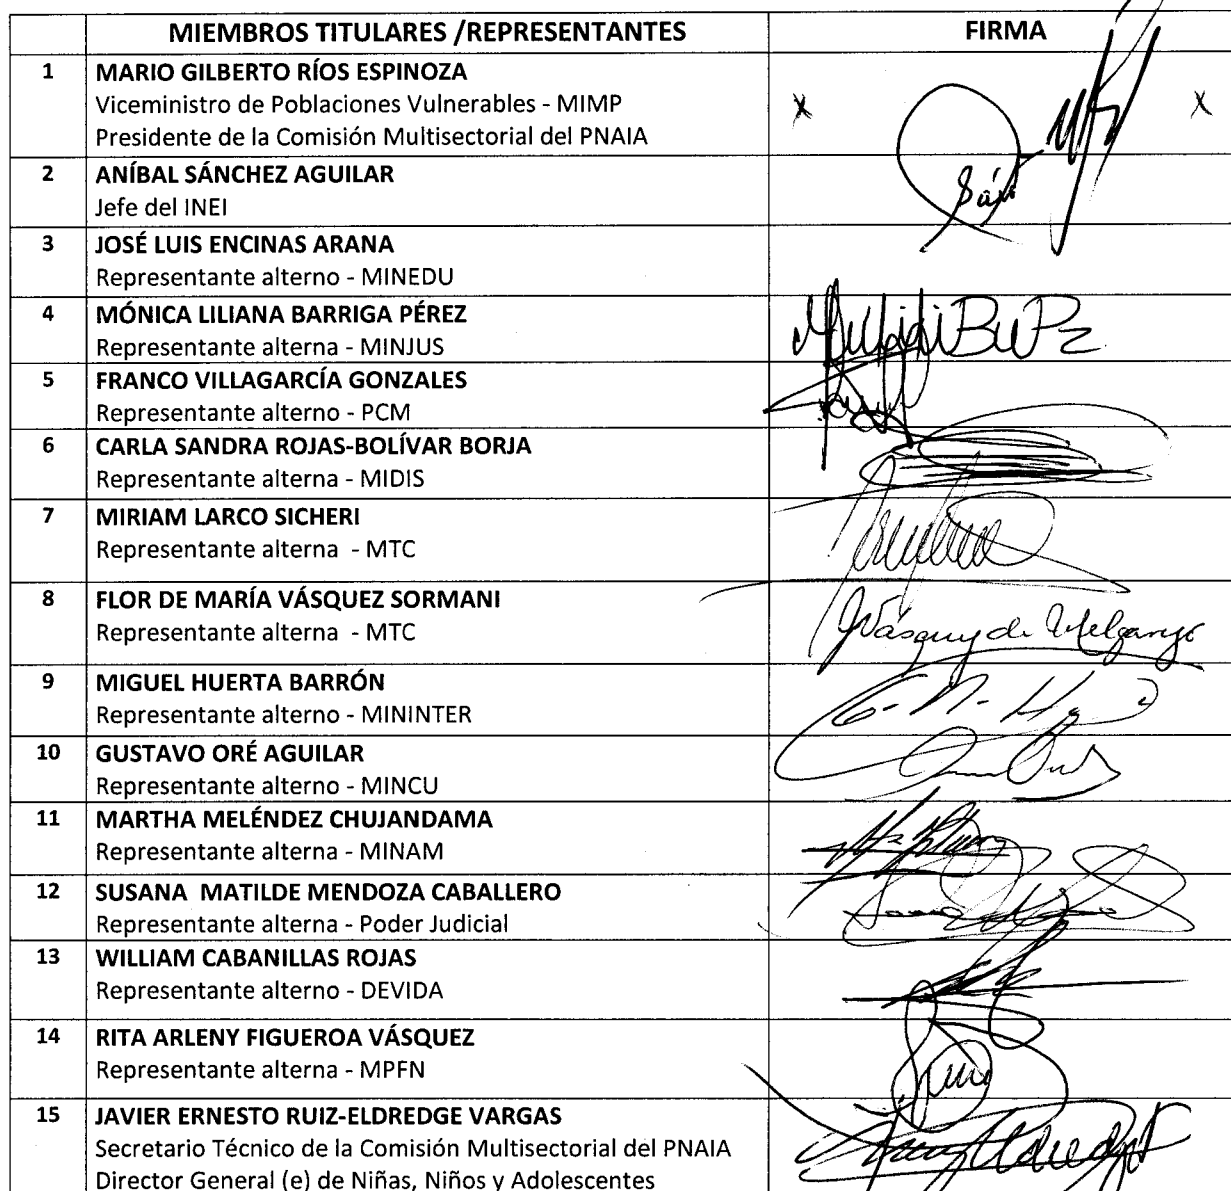 MIEMBROS TITULARES /REPRESENTANTES FIRMA
1 MARIO GILBERTO RÍOS ESPINOZA
Viceministro de Poblaciones Vulnerables - MIMP
Presidente de la Comisión Multisectorial del PNAIA
2 ANÍBAL SÁNCHEZ AGUILAR
Jefe del INEI
3 JOSÉ LUIS ENCINAS ARANA
Representante alterno - MINEDU
4 MÓNICA LILIANA BARRIGA PÉREZ
Representante alterna - MINJUS
5 FRANCO VILLAGARCÍA GONZALES
Representante alterno - PCM
6 CARLA SANDRA ROJAS-BOLÍVAR BORJA
Representante alterna - MIDIS
7 MIRIAM LARCO SICHERI
Representante alterna - MTC
8 FLOR DE MARÍA VÁSQUEZ SORMANI
Representante alterna - MTC
9 MIGUEL HUERTA BARRÓN
Representante alterno - MININTER
10 GUSTAVO ORÉ AGUILAR
Representante alterno - MINCU
11 MARTHA MELÉNDEZ CHUJANDAMA
Representante alterna - MINAM
12 SUSANA MATILDE MENDOZA CABALLERO
Representante alterna - Poder Judicial
13 WILLIAM CABANILLAS ROJAS
Representante alterno - DEVIDA
14 RITA ARLENY FIGUEROA VÁSQUEZ
Representante alterna - MPFN
15 JAVIER ERNESTO RUIZ-ELDREDGE VARGAS
Secretario Técnico de la Comisión Multisectorial del PNAIA
Director General (e) de Niñas, Niños y Adolescentes